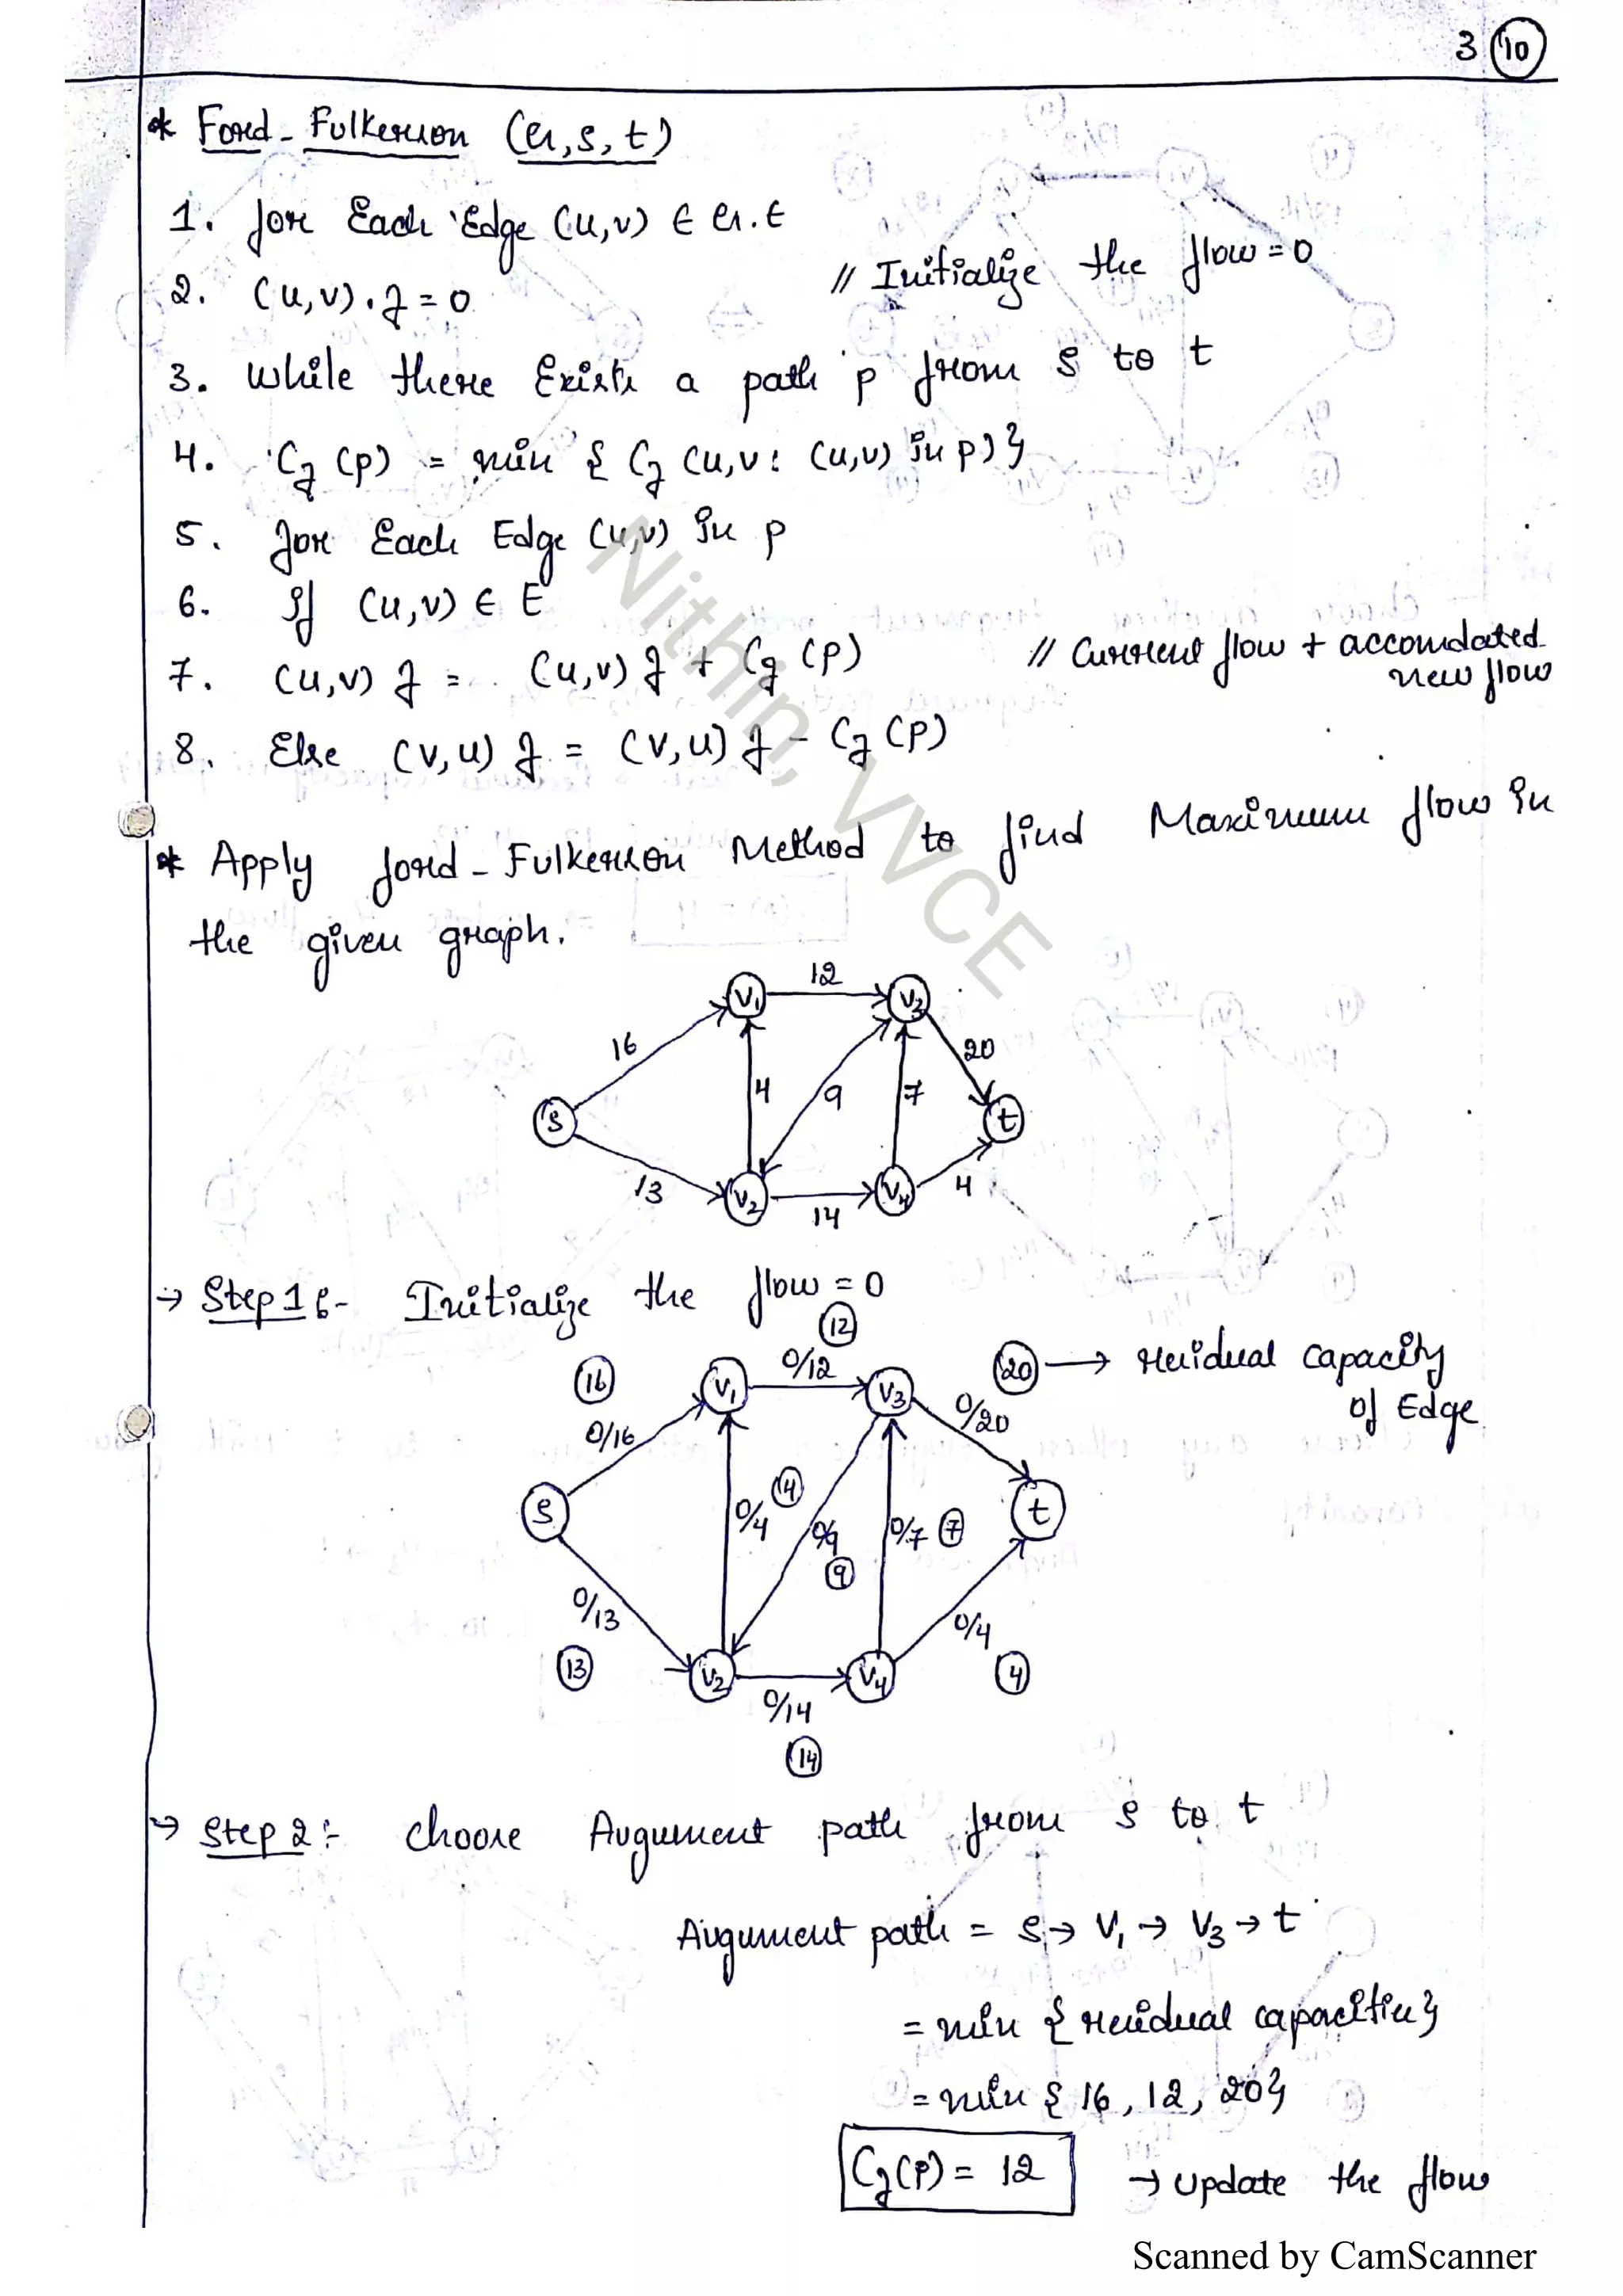 3 10
* Ford-Fulkerson (G,s,t)
1. for Each Edge (u,v) ∈ G.E
2. (u,v).f = 0 // Initialize the flow = 0
3. While there Exists a path p from s to t
4. Cf (p) = min { Cf (u,v : (u,v) in p) }
5. for Each Edge (u,v) in p
6. If (u,v) ∈ E
7. (u,v) f = (u,v) f + Cf (p) // Current flow + accomdated
new flow
8. Else (v,u) f = (v,u) f - Cf (p)
* Apply ford-Fulkerson Method to find Maximum flow in
the given graph.
12
V1 V3
16 20
4 9 7
s t
13 4
V2 V4
14
→ Step 1 :- Initialize the flow = 0
12
16 0/12 20 → residual capacity
of Edge
V1 V3
0/16 0/20
4
s 0/4 0/9 0/7 7 t
9
0/13 0/4
13 V2 V4 4
0/14
14
→ Step 2 :- choose Augument path from s to t
Augument path = s → V1 → V3 → t
= min { residual capacities }
= min { 16, 12, 20 }
Cf(p) = 12 → update the flow
Nithin, VVCE
Scanned by CamScanner